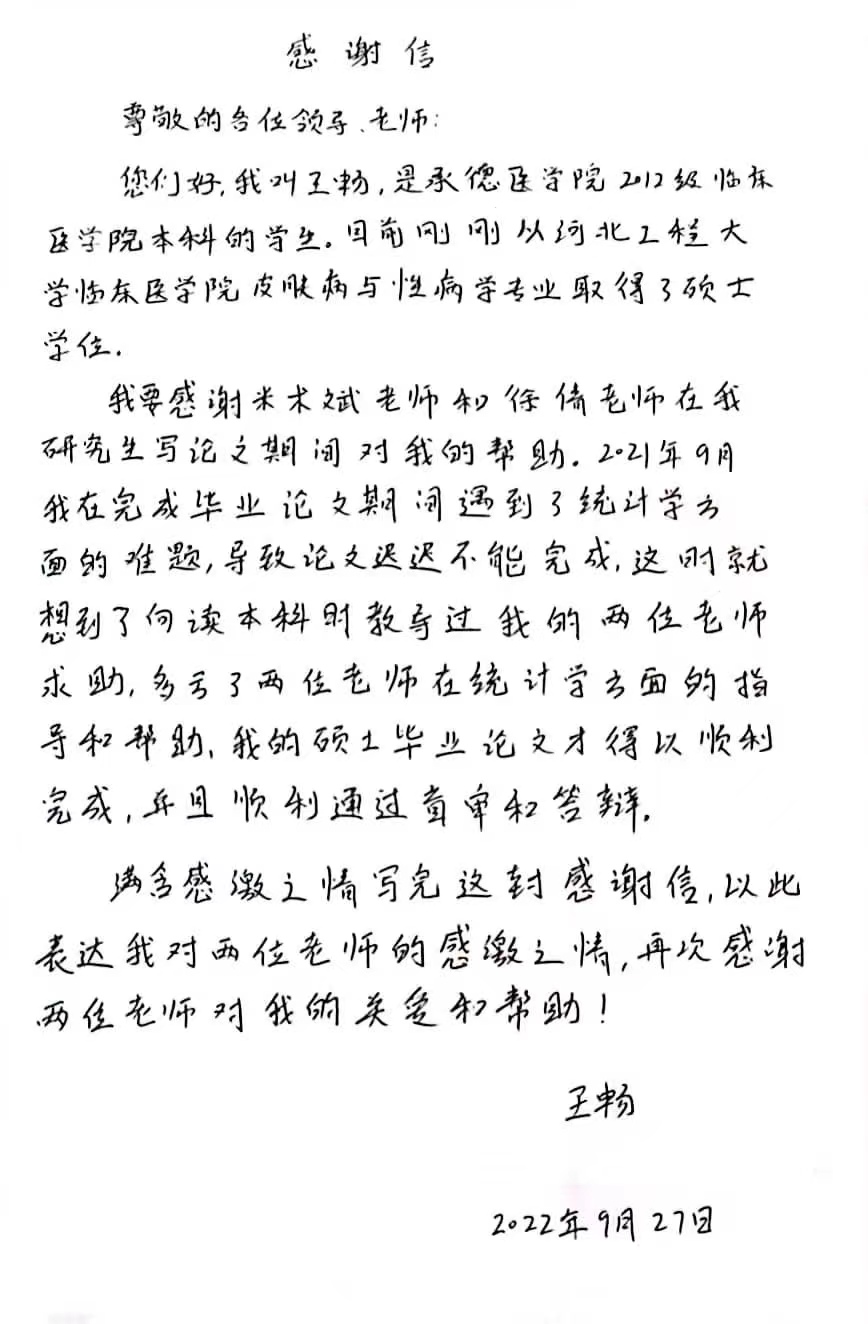 感谢信
尊敬的各位领导、老师:
您们好,我叫王畅,是承德医学院2012级临床
医学院本科的学生。目前刚刚以河北工程大
学临床医学院皮肤病与性病学专业取得了硕士
学位.
我要感谢米术斌老师和徐倩老师在我
研究生写论文期间对我的帮助.2021年9月
我在完成毕业论文期间遇到了统计学方
面的难题,导致论文迟迟不能完成,这时就
想到了向读本科时教导过我的两位老师
求助,多亏了两位老师在统计学方面的指
导和帮助,我的硕士毕业论文才得以顺利
完成,并且顺利通过盲审和答辩.
满含感激之情写完这封感谢信,以此
表达我对两位老师的感激之情,再次感谢
两位老师对我的关爱和帮助!
王畅
2022年9月27日